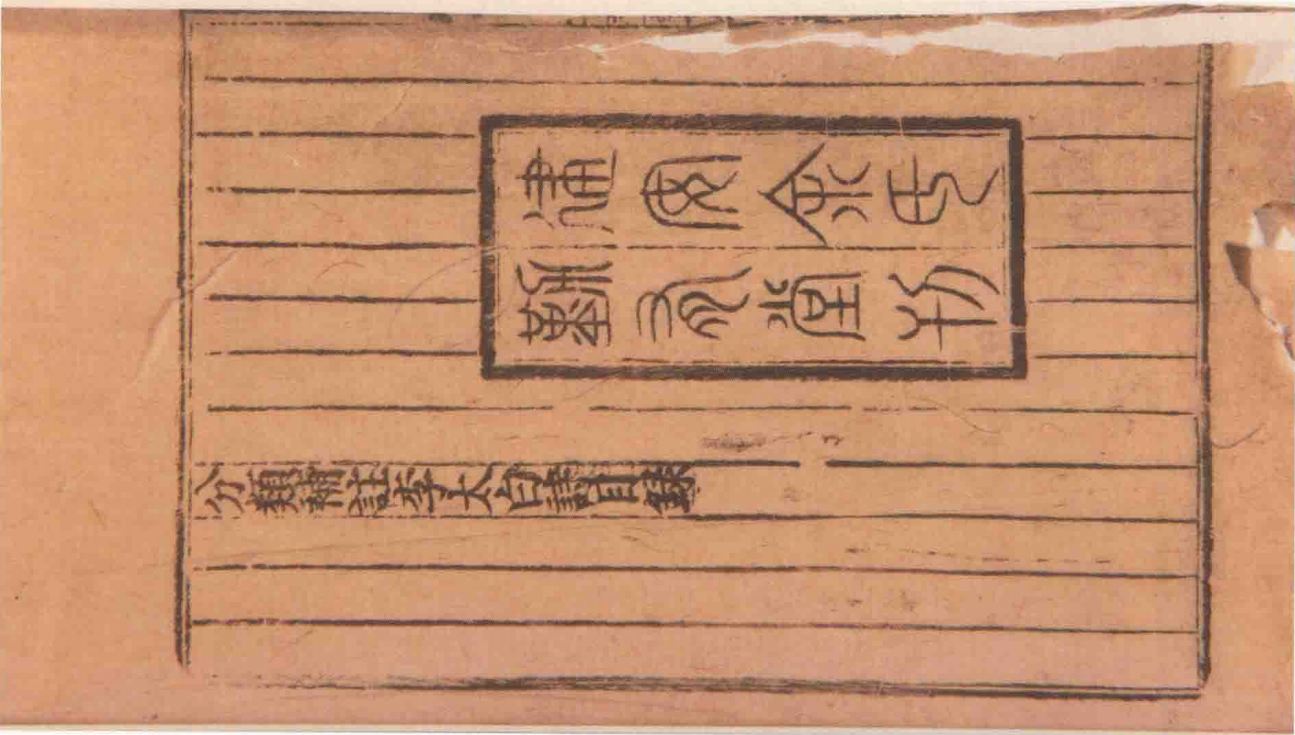 建安余氏
勤有堂刊
分類補註李太白詩目錄